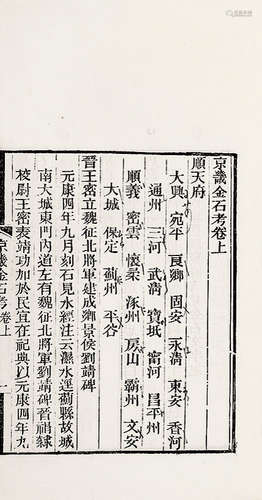 京畿金石考卷上
順天府
大興 宛平 良鄉 固安 永清 東安 香河
通州 三河 武清 寶坻 甯河 昌平州
順義 密雲 懷柔 涿州 房山 霸州 文安
大城 保定 薊州 平谷
晉王密立魏征北將軍建成鄉景侯劉靖碑
元康四年九月刻石見水經注云㶟水逕薊縣故城
南大城東門內道左有魏征北將軍劉靖碑晉司隸
校尉王密表靖功加於民宜在祀典以元康四年九
京畿金石考 卷上 一